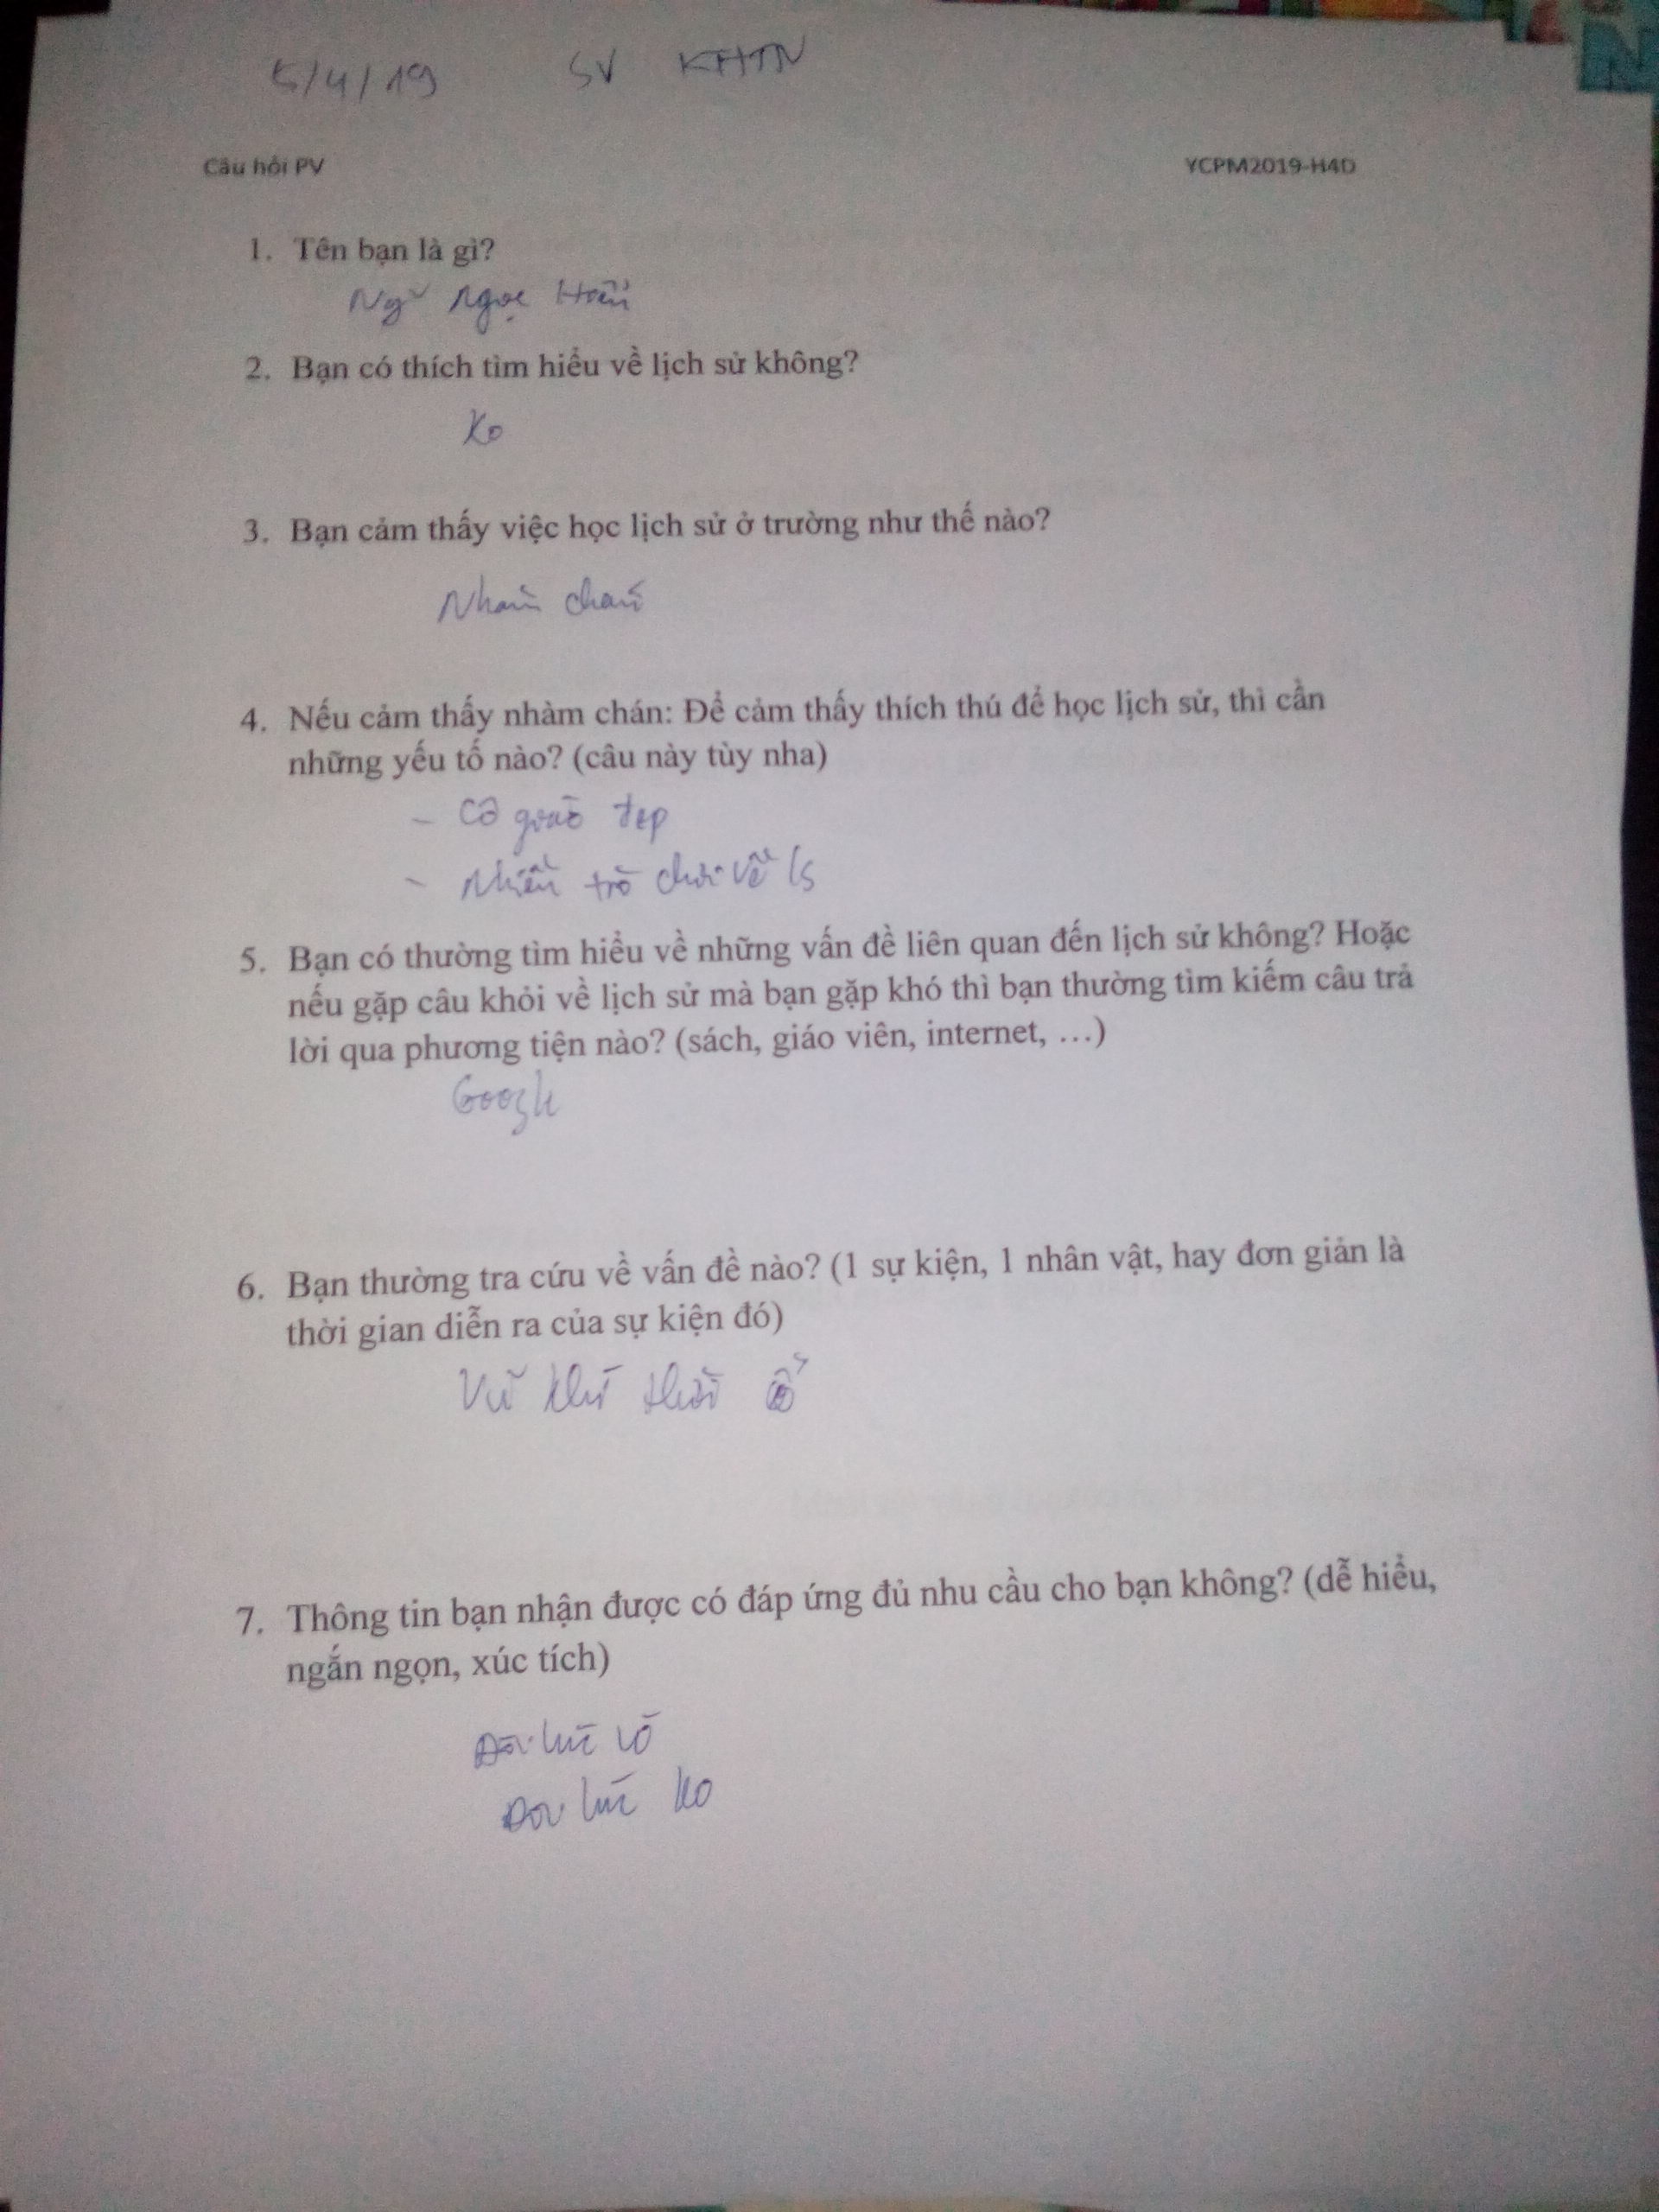 5/4/19 SV KHTN
Câu hỏi PV YCPM2019-H4D
1. Tên bạn là gì?
Ngọc
2. Bạn có thích tìm hiểu về lịch sử không?
Ko
3. Bạn cảm thấy việc học lịch sử ở trường như thế nào?
Nhàm chán
4. Nếu cảm thấy nhàm chán: Để cảm thấy thích thú để học lịch sử, thì cần
những yếu tố nào? (câu này tùy nha)
- Cô giáo đẹp
- Nhiều trò chơi về ls
5. Bạn có thường tìm hiểu về những vấn đề liên quan đến lịch sử không? Hoặc
nếu gặp câu khỏi về lịch sử mà bạn gặp khó thì bạn thường tìm kiếm câu trả
lời qua phương tiện nào? (sách, giáo viên, internet, …)
Google
6. Bạn thường tra cứu về vấn đề nào? (1 sự kiện, 1 nhân vật, hay đơn giản là
thời gian diễn ra của sự kiện đó)
Vũ khí thời
7. Thông tin bạn nhận được có đáp ứng đủ nhu cầu cho bạn không? (dễ hiểu,
ngắn ngọn, xúc tích)
Đôi lúc có
Đôi lúc ko